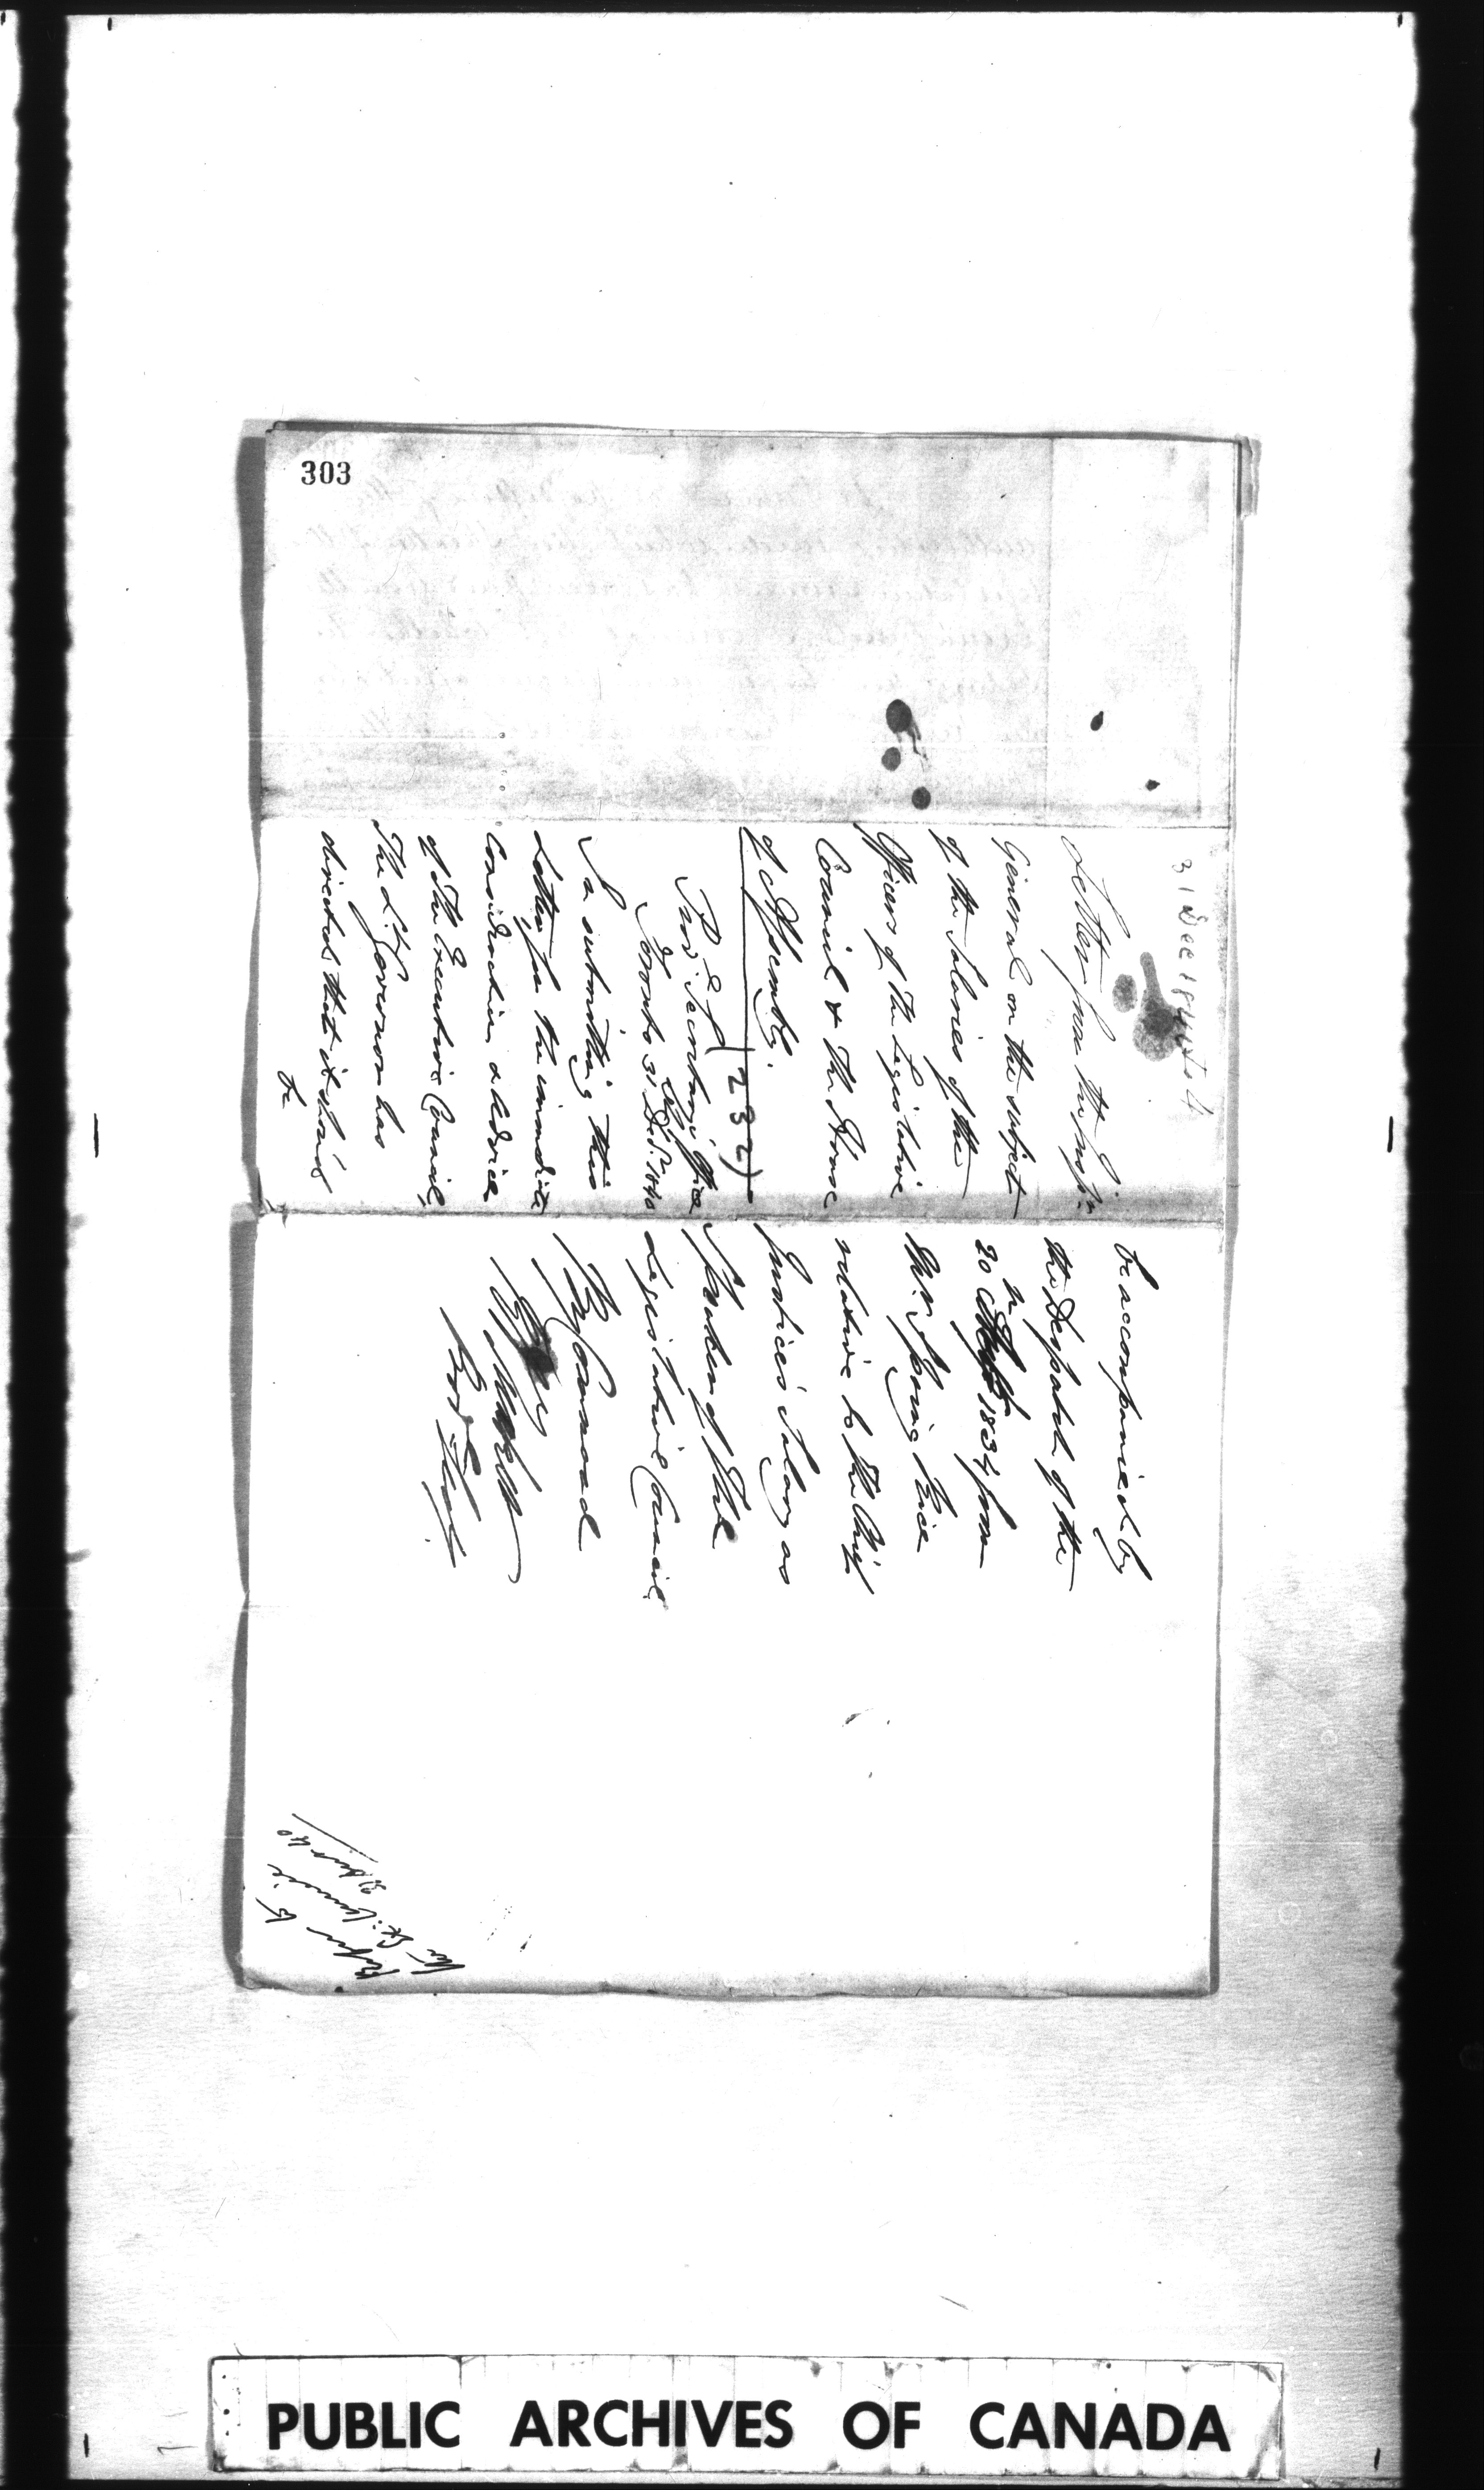 303
31 Dec 1840
Letter from the Insp:r
General on the subject
of the Salaries of the
Officers of the Legislative
Council & the House
of Assembly.
232)
Prov: Secretary's Office
Toronto 31 Dec.r 1840
In submitting this
Letter for the immediate
consideration & advice
of the Executive Council,
The L.t Governor has
directed, that it should
be
be accompanied by
the Despatch of the
20 1834 from
Mr. Spring Rice
relative to the Chief
Justice's Salary as
Speaker of the
Legislative Council
By Command
Refer to
the Ex: Council
PUBLIC ARCHIVES OF CANADA